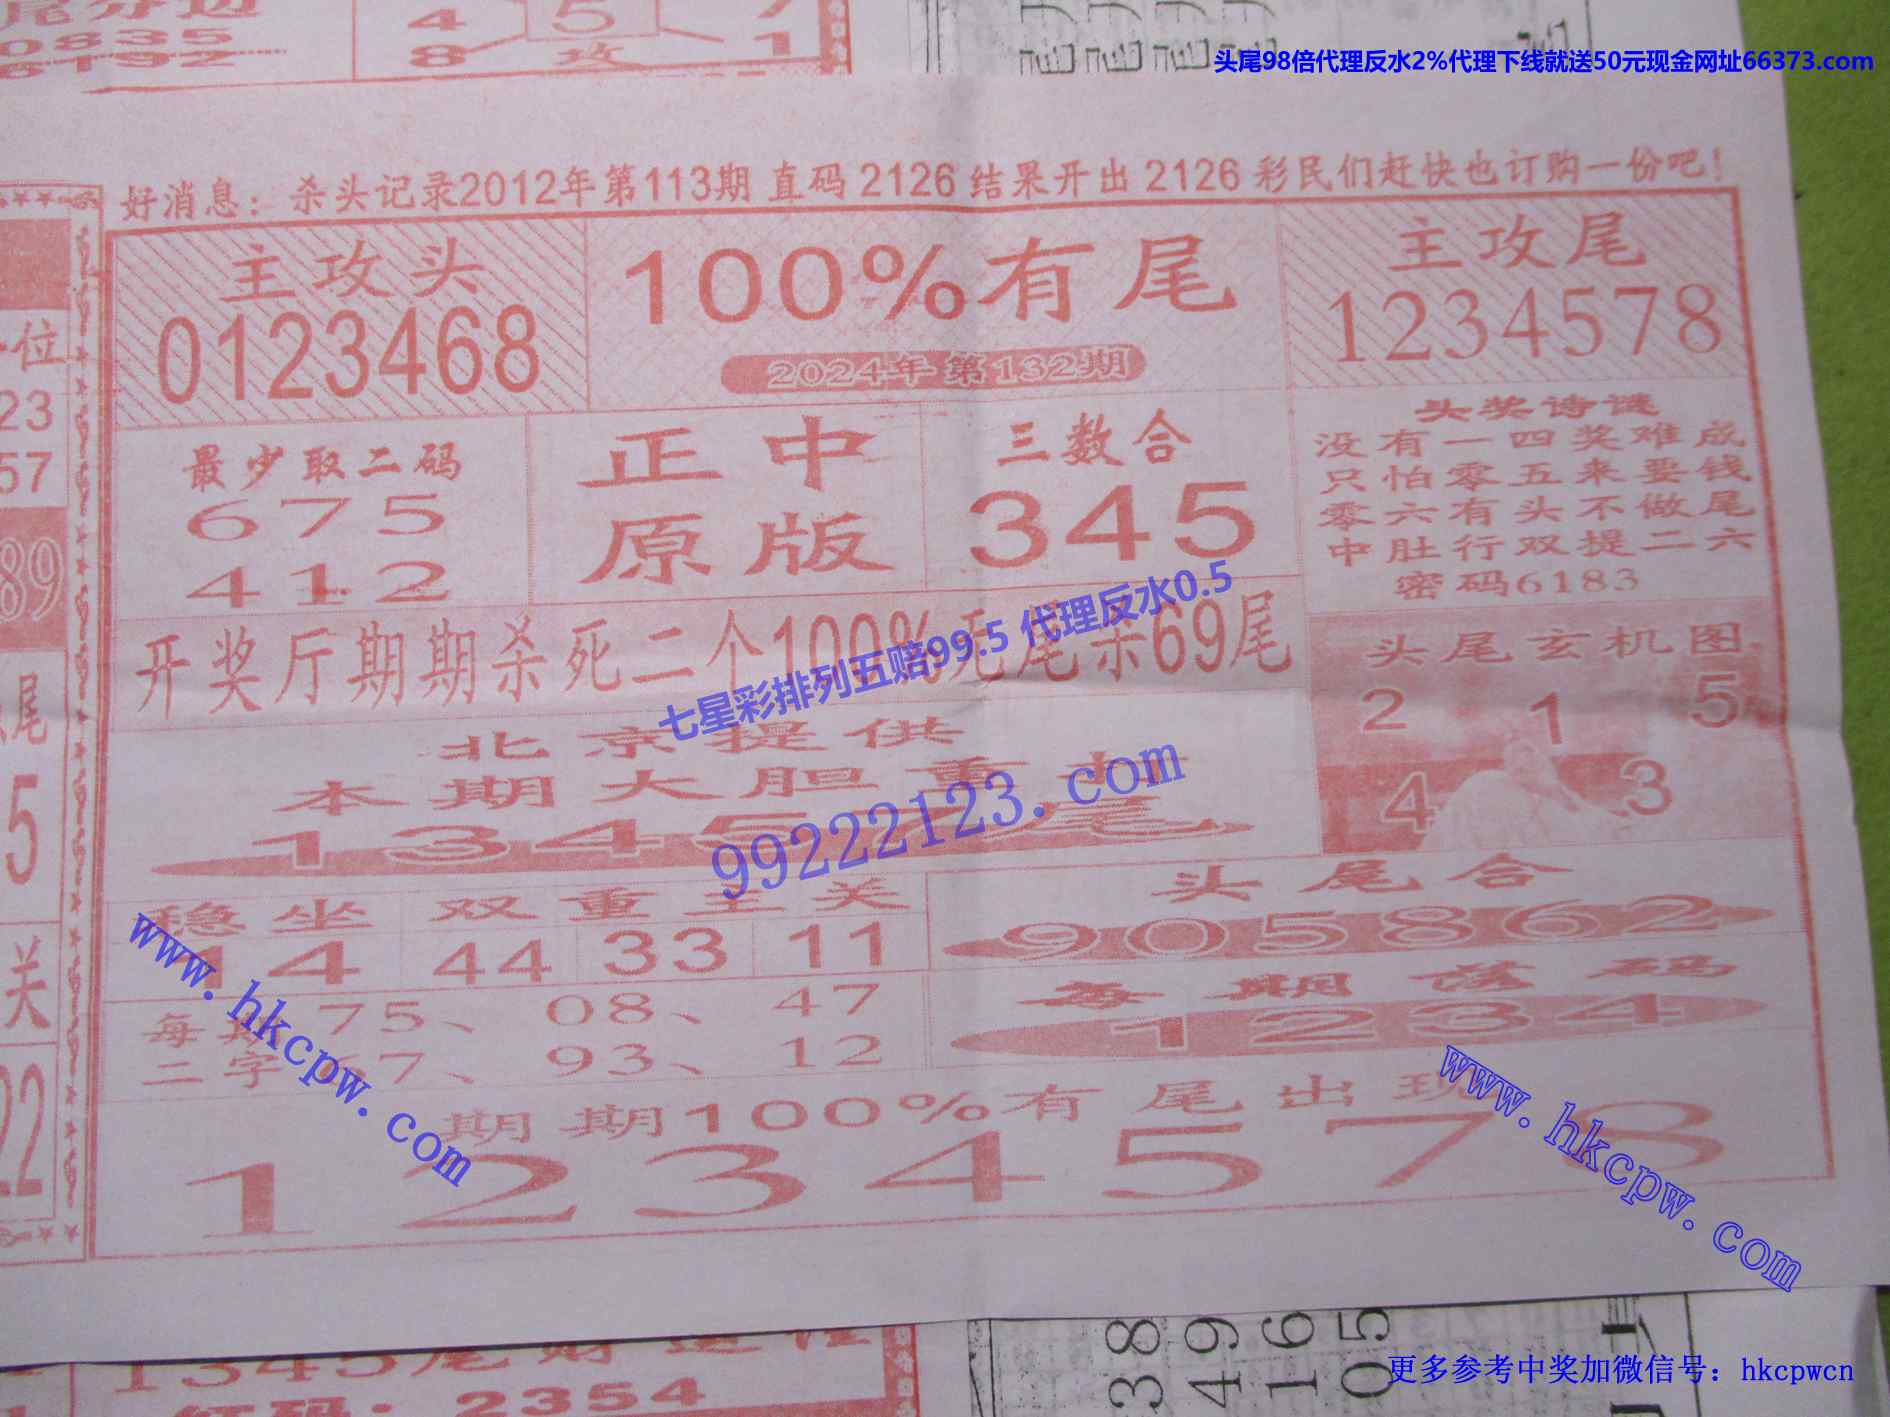 尾分边
0835
6192
4 5 7
8 攻 1
头尾98倍代理反水2%代理下线就送50元现金网址66373.com
好消息：杀头记录2012年第113期 直码 2126 结果开出 2126 彩民们赶快也订购一份吧！
主攻头
0123468
100%有尾
2024年第132期
主攻尾
1234578
最少取二码
675
412
正中
原版
三数合
345
头奖诗谜
没有一四奖难成
只怕零五来要钱
零六有头不做尾
中肚行双提二六
密码6183
开奖厅期期杀死二个100% 尾杀69尾
七星彩排列五赔99.5 代理反水0.5
头尾玄机图
2 1 5
4 3
北京提供
本期大胆重
1345 尾
99222123.com
稳坐双重主关
14 44 33 11
头尾合
905862
每期落码
1234
每期 75、08、47
二字 7、93、12
www.hkcpw.com
www.hkcpw.com
期期100%有尾出现
1234578
位
23
57
89
尾
5
关
22
1345尾财
红码：2354
38
49
16
05
更多参考中奖加微信号：hkcpwcn